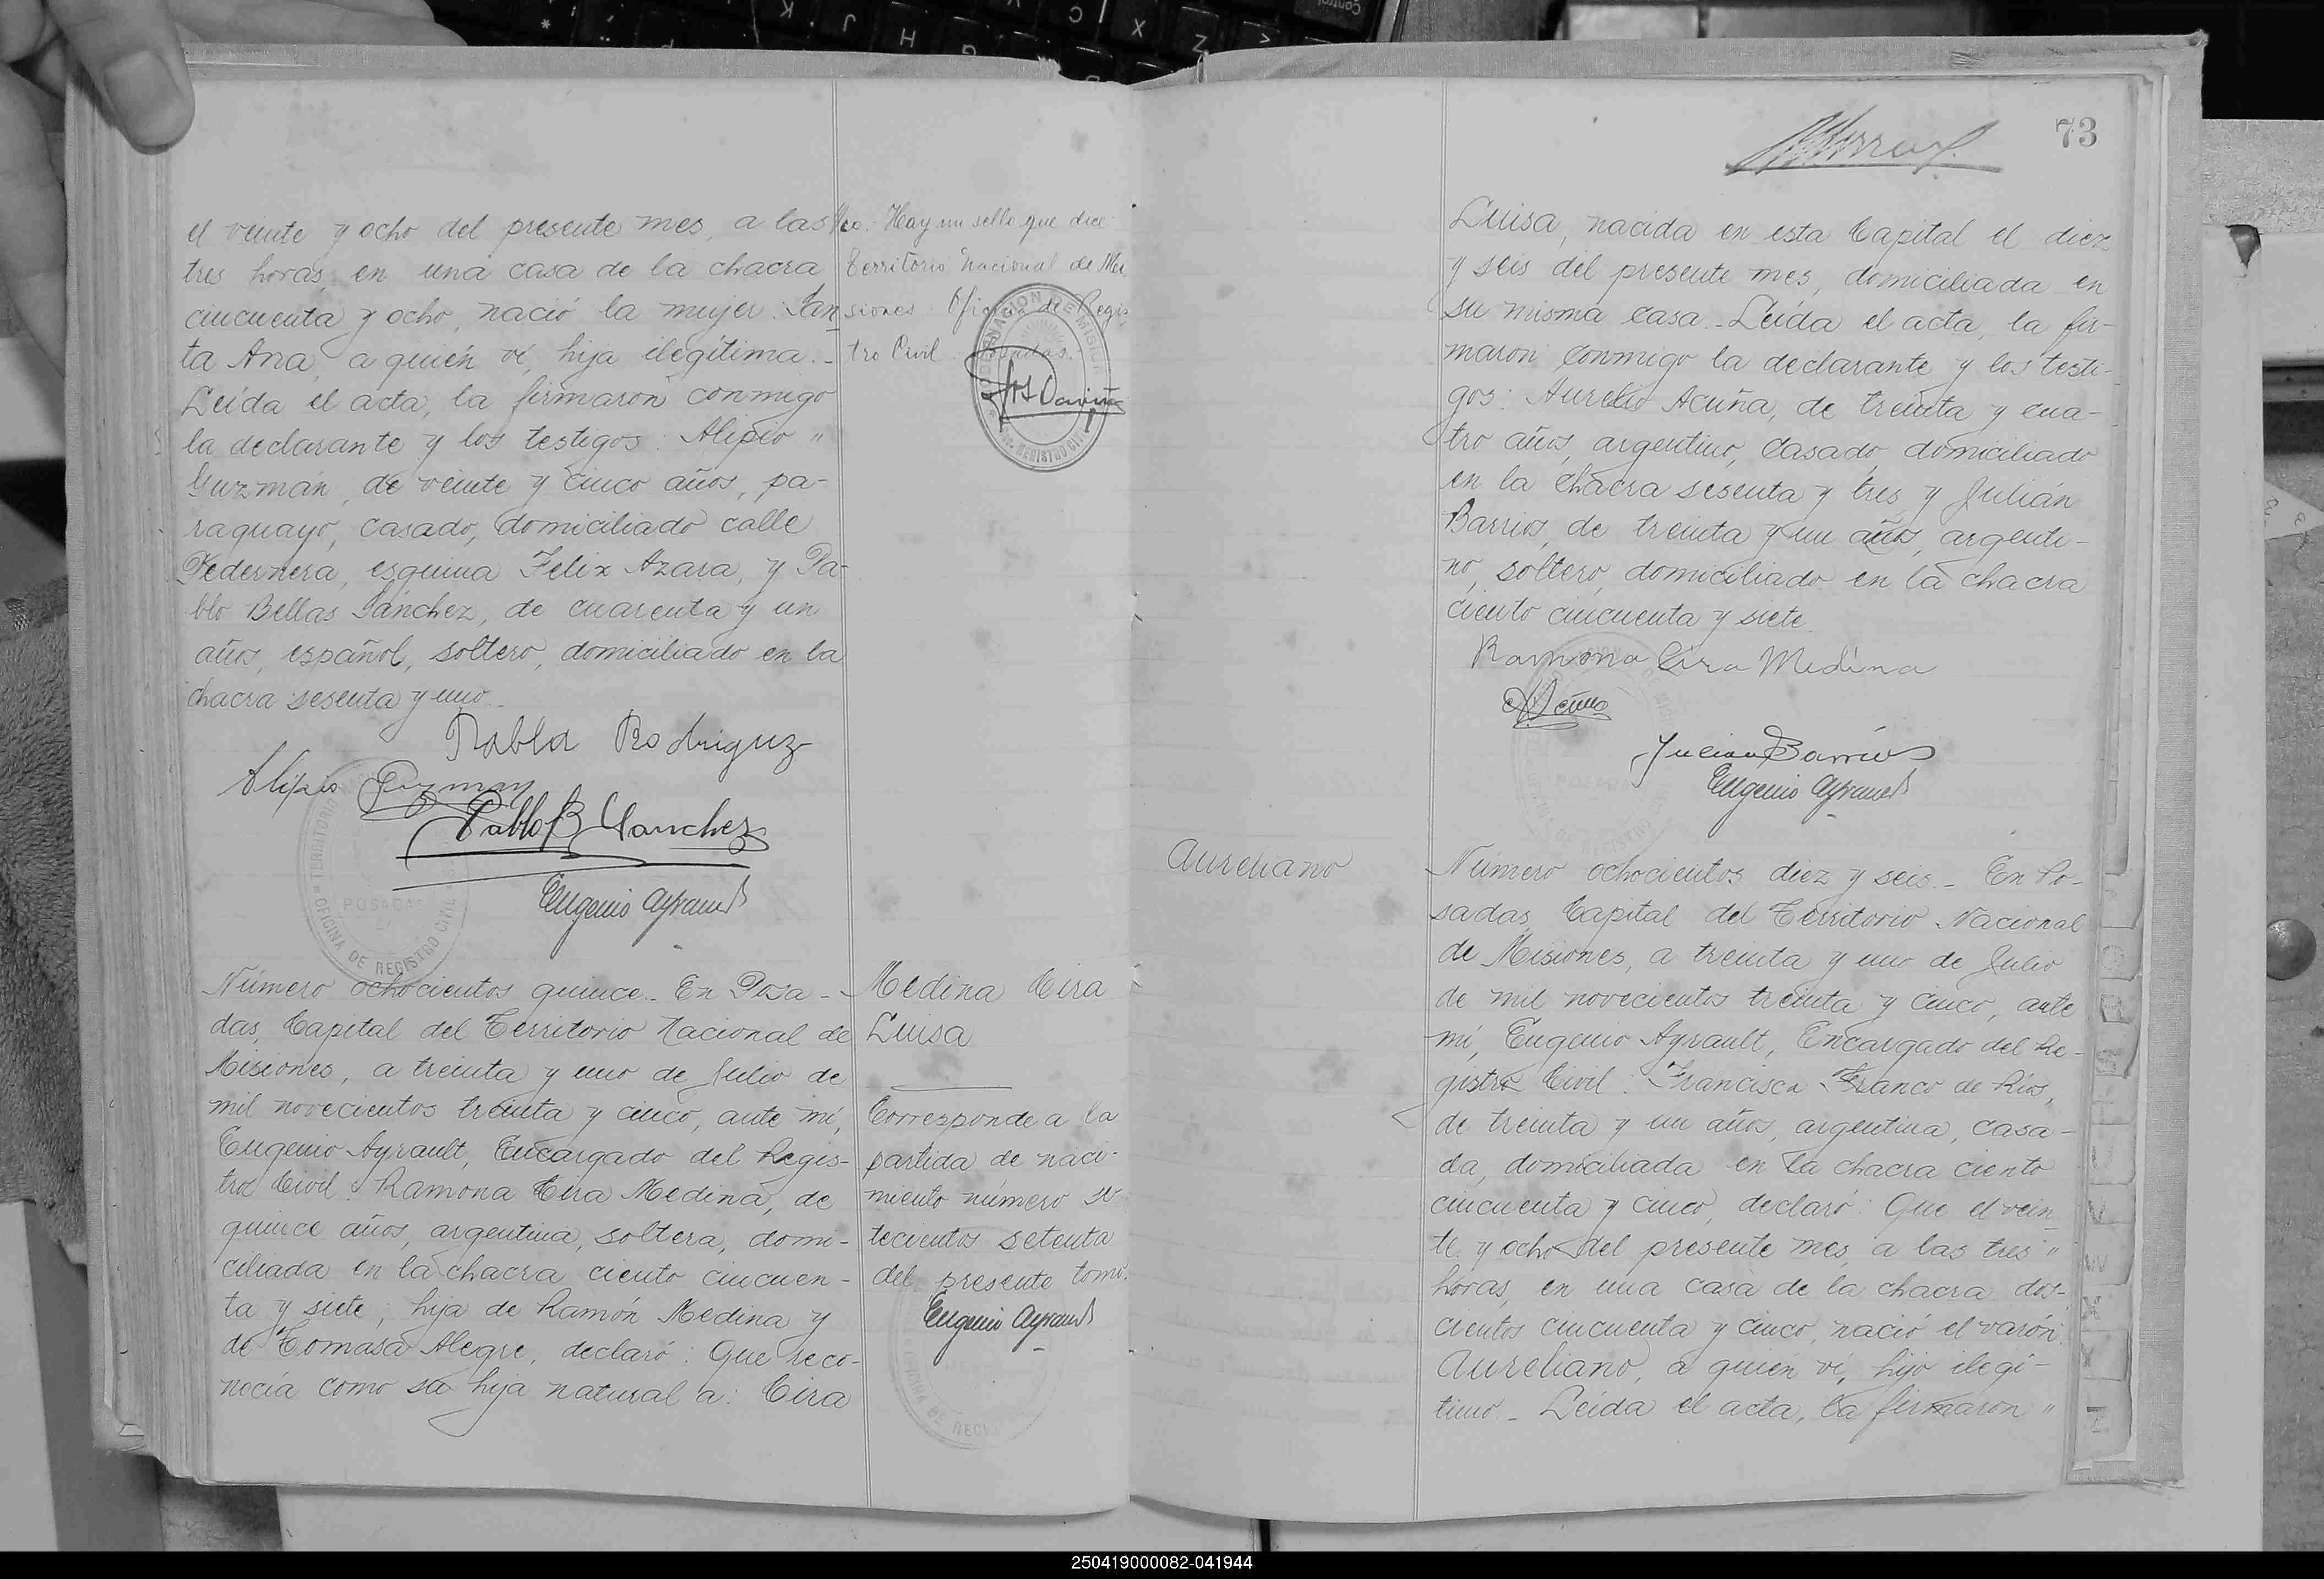 el veinte y ocho del presente mes, a las
tres horas, en una casa de la chacra
cincuenta y ocho, nació la mujer: San
ta Ana, a quién ví, hija ilegítima.-
Leída el acta, la firmaron conmigo
la declarante y los testigos: Alipio "
Guzmán, de veinte y cinco años, pa-
raguayo, casado, domiciliado calle
Pedernera, esquina Felix Azara, y Pa-
blo Bellas Sánchez, de cuarenta y un
años, español, soltero, domiciliado en la
chacra sesenta y uno.-
Pabla Rodriguz
Alipio Guzman
Pablo B Sanchez
Eugenio Ayrault
TERRITORIO
POSADAS
OFICINA DE REGISTRO CIVIL
Hay un sello que dice:
Territorio Nacional de Mi
siones Oficina de Regis
tro Civil Posadas.-
GOBERNACION DE MISIONES
REGISTRO CIVIL
Número ochocientos quince.- En Posa-
das, Capital del Territorio Nacional de
Misiones, a treinta y uno de Julio de
mil novecientos treinta y cinco, ante mí,
Eugenio Ayrault, Encargado del Regis-
tro Civil: Ramona Cira Medina, de
quince años, argentina, soltera, domi-
ciliada en la chacra ciento cincuen-
ta y siete; hija de Ramón Medina y
de Tomasa Alegre, declaró: Que reco-
nocía como su hija natural a: Cira
Medina Cira
Luisa
Corresponde a la
partida de naci-
miento número se
tecientos setenta
del presente tomo.
Eugenio Ayrault
73
Luisa, nacida en esta Capital el diez
y seis del presente mes, domiciliada en
su misma casa.- Leída el acta, la fir-
maron conmigo la declarante y los testi-
gos: Aurelio Acuña, de treinta y cua-
tro años, argentino, casado, domiciliado
en la chacra sesenta y tres, y Julián
Barrios, de treinta y un años, argenti-
no, soltero, domiciliado en la chacra
ciento cincuenta y siete.
Ramona Cira Medina
Acuña
Julian Barrios
Eugenio Ayrault
Aureliano
Número ochocientos diez y seis.- En Po-
sadas, Capital del Territorio Nacional
de Misiones, a treinta y uno de Julio
de mil novecientos treinta y cinco, ante
mí, Eugenio Ayrault, Encargado del Re-
gistro Civil: Francisca Franco de Ríos,
de treinta y un años, argentina, casa-
da, domiciliada en la chacra ciento
cincuenta y cinco, declaró: Que el vein
te y ocho del presente mes, a las tres "
horas, en una casa de la chacra dos-
cientos cincuenta y cinco, nació el varón:
Aureliano, a quién ví, hijo ilegí-
timo.- Leída el acta, la firmaron "
250419000082-041944